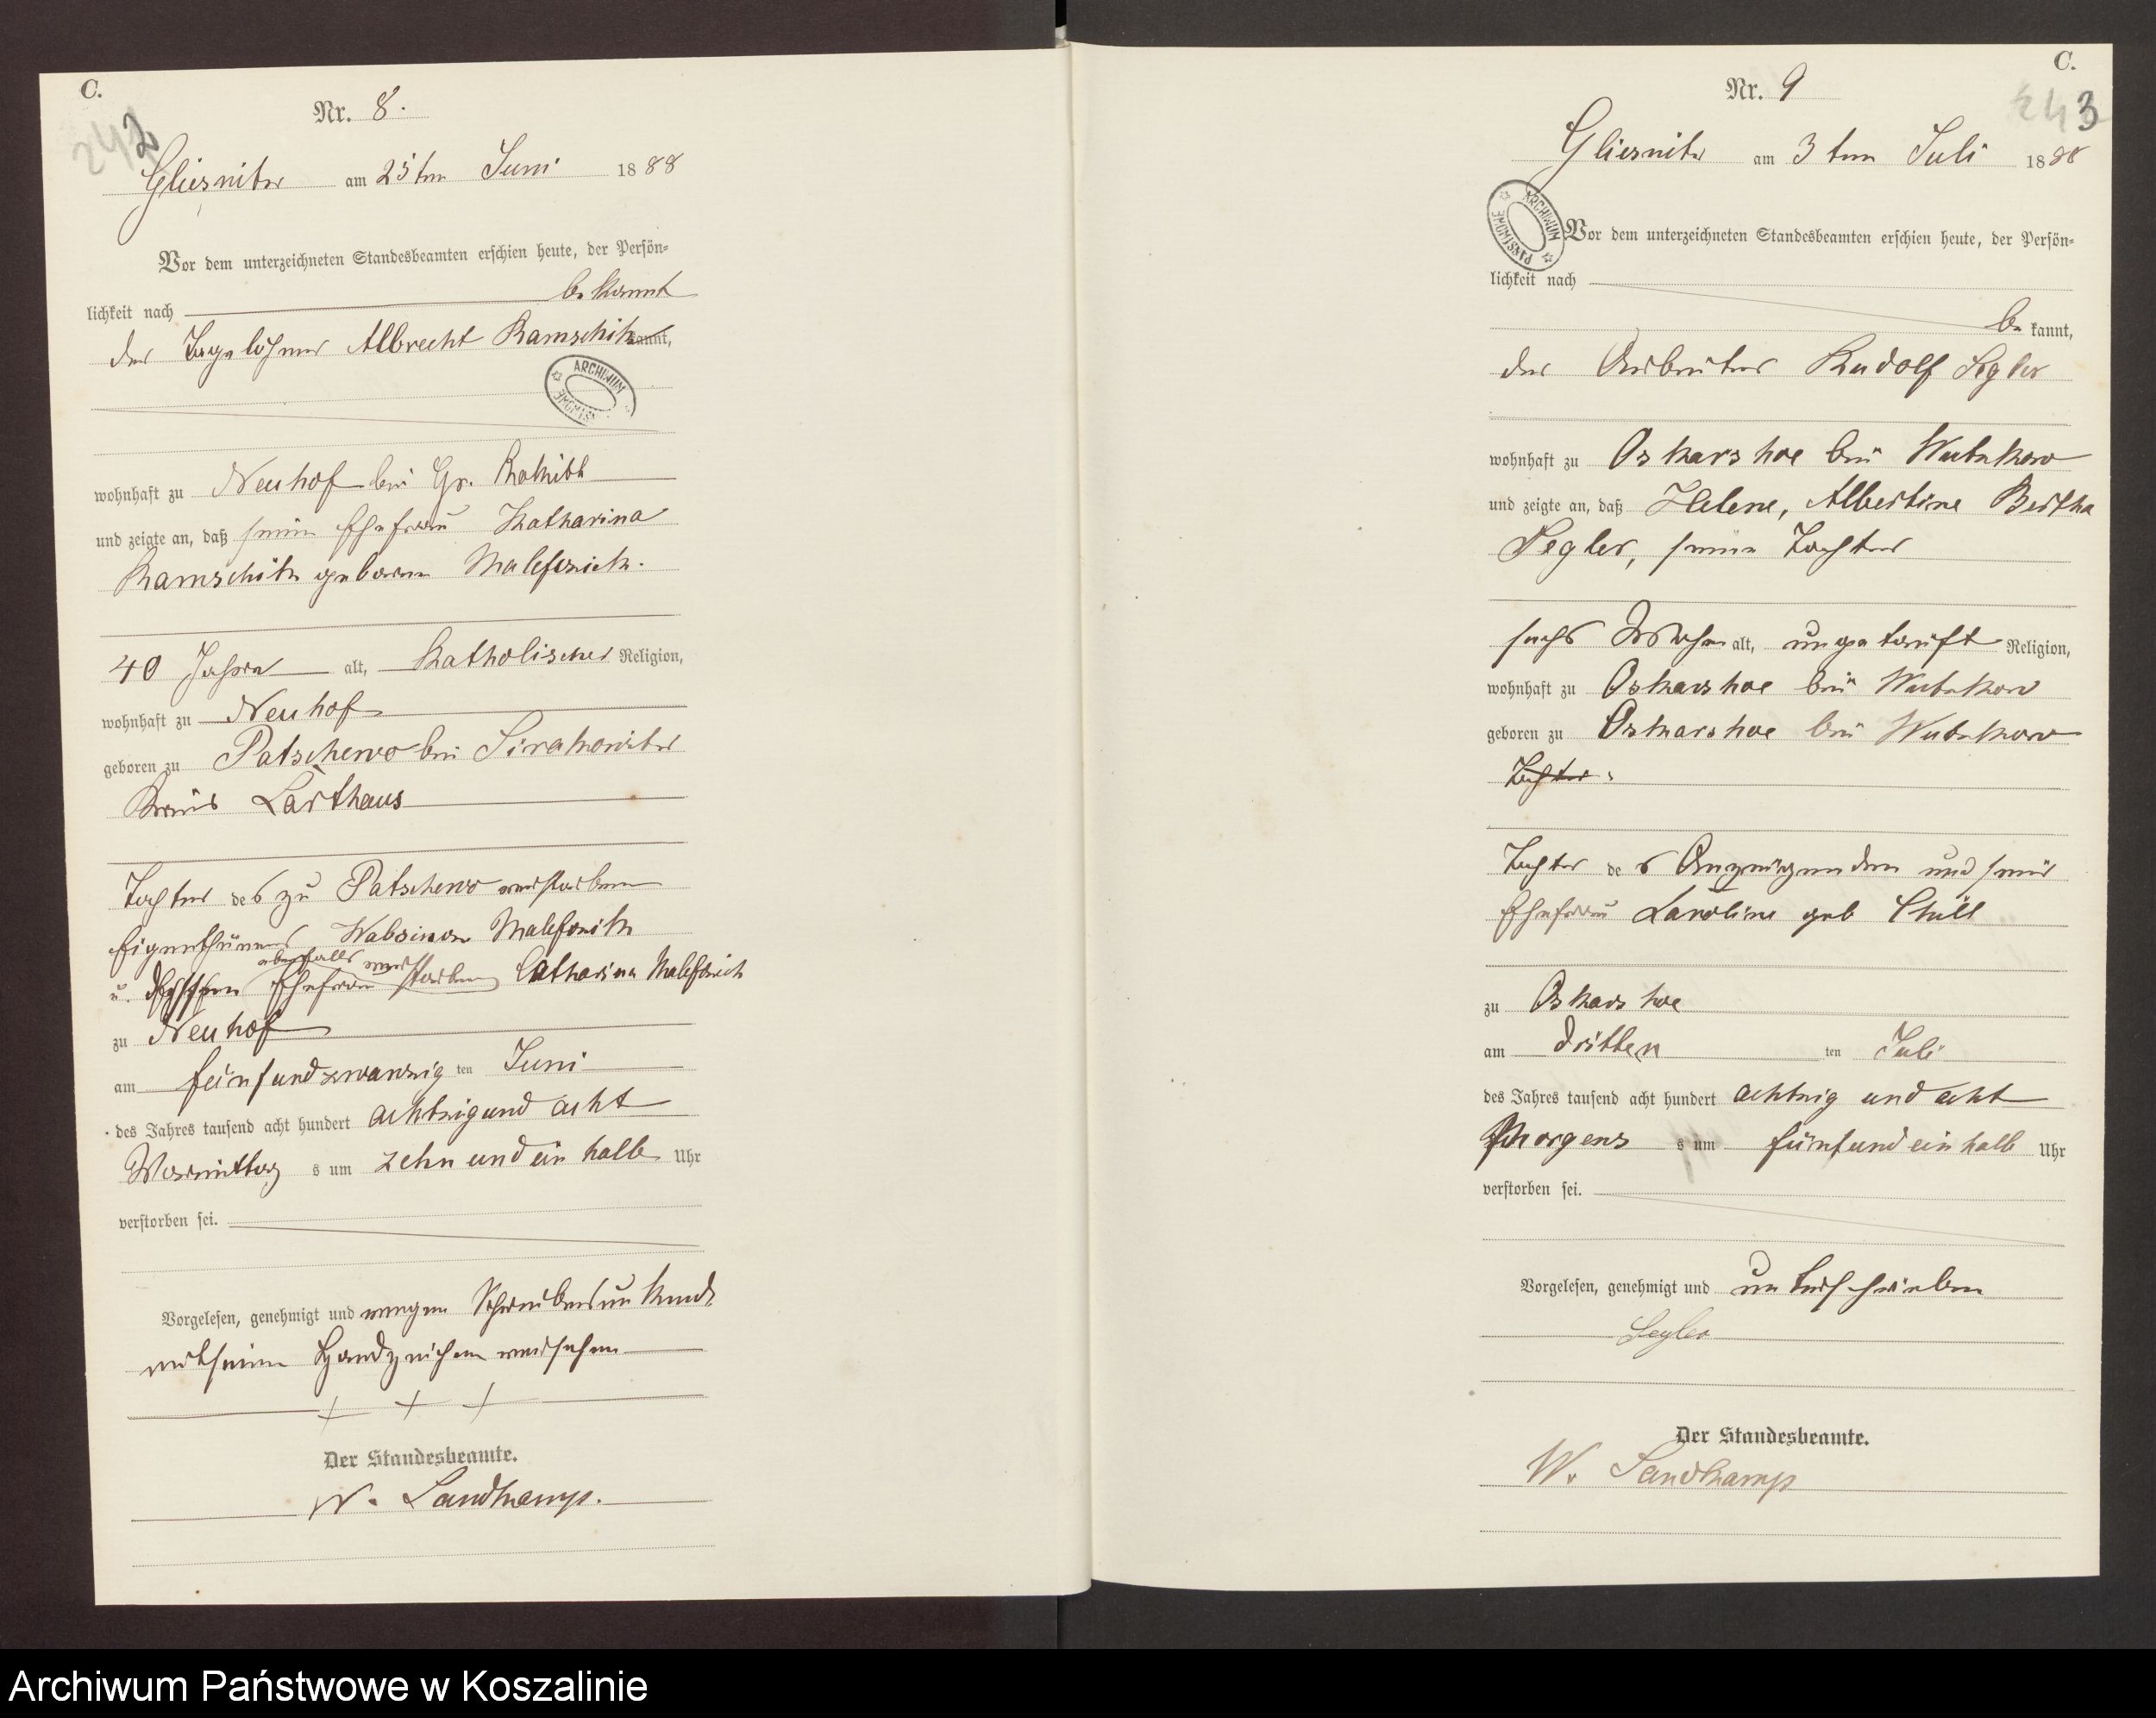 C.
242
Nr. 8.
Gliesnitz am 25ten Juni 1888
Vor dem unterzeichneten Standesbeamten erschien heute, der Persön=
lichkeit nach bekannt
der Tagelöhner Albrecht Ramschik kannt,
ARCHIWUM
wohnhaft zu Neuhof bei Gr.
und zeigte an, daß seine Ehefrau Katharina
Ramschik geborene
40 Jahre alt, Katholischer Religion,
wohnhaft zu Neuhof
geboren zu Patschewo bei Sirakowitz
Kreis Carthaus
Tochter des zu Patschewo verstorbenen
Eigenthümers
u. dessen ebenfalls verstorbenen Ehefrau Catharina
zu Neuhof
am fünfundzwanzig ten Juni
des Jahres tausend acht hundert achtzigund acht
Vormittag s um zehn und ein halb Uhr
verstorben sei.
Vorgelesen, genehmigt und wegen Schreibensunkunde
mit seinem Handzeichen versehen
+ + +
Der Standesbeamte.
W. Sandkamp.
C.
243
Nr. 9
Gliesnitz am 3ten Juli 1888
ARCHIWUM PAŃSTWOWE
Vor dem unterzeichneten Standesbeamten erschien heute, der Persön=
lichkeit nach
be kannt,
der Arbeiter Rudolf Segler
wohnhaft zu Oskarshoe bei Wutzkow
und zeigte an, daß Helene, Albertine Bertha
Segler, seine Tochter
sechs Wochen alt, ungetauft Religion,
wohnhaft zu Oskarshoe bei Wutzkow
geboren zu Oskarshoe bei Wutzkow
Tochter
Tochter des Anzeigenden und seiner
Ehefrau Caroline geb
zu Oskarshoe
am dritten ten Juli
des Jahres tausend acht hundert achtzig und acht
Morgens s um fünfundeinhalb Uhr
verstorben sei.
Vorgelesen, genehmigt und unterschrieben
Segler
Der Standesbeamte.
W. Sandkamp
Archiwum Państwowe w Koszalinie